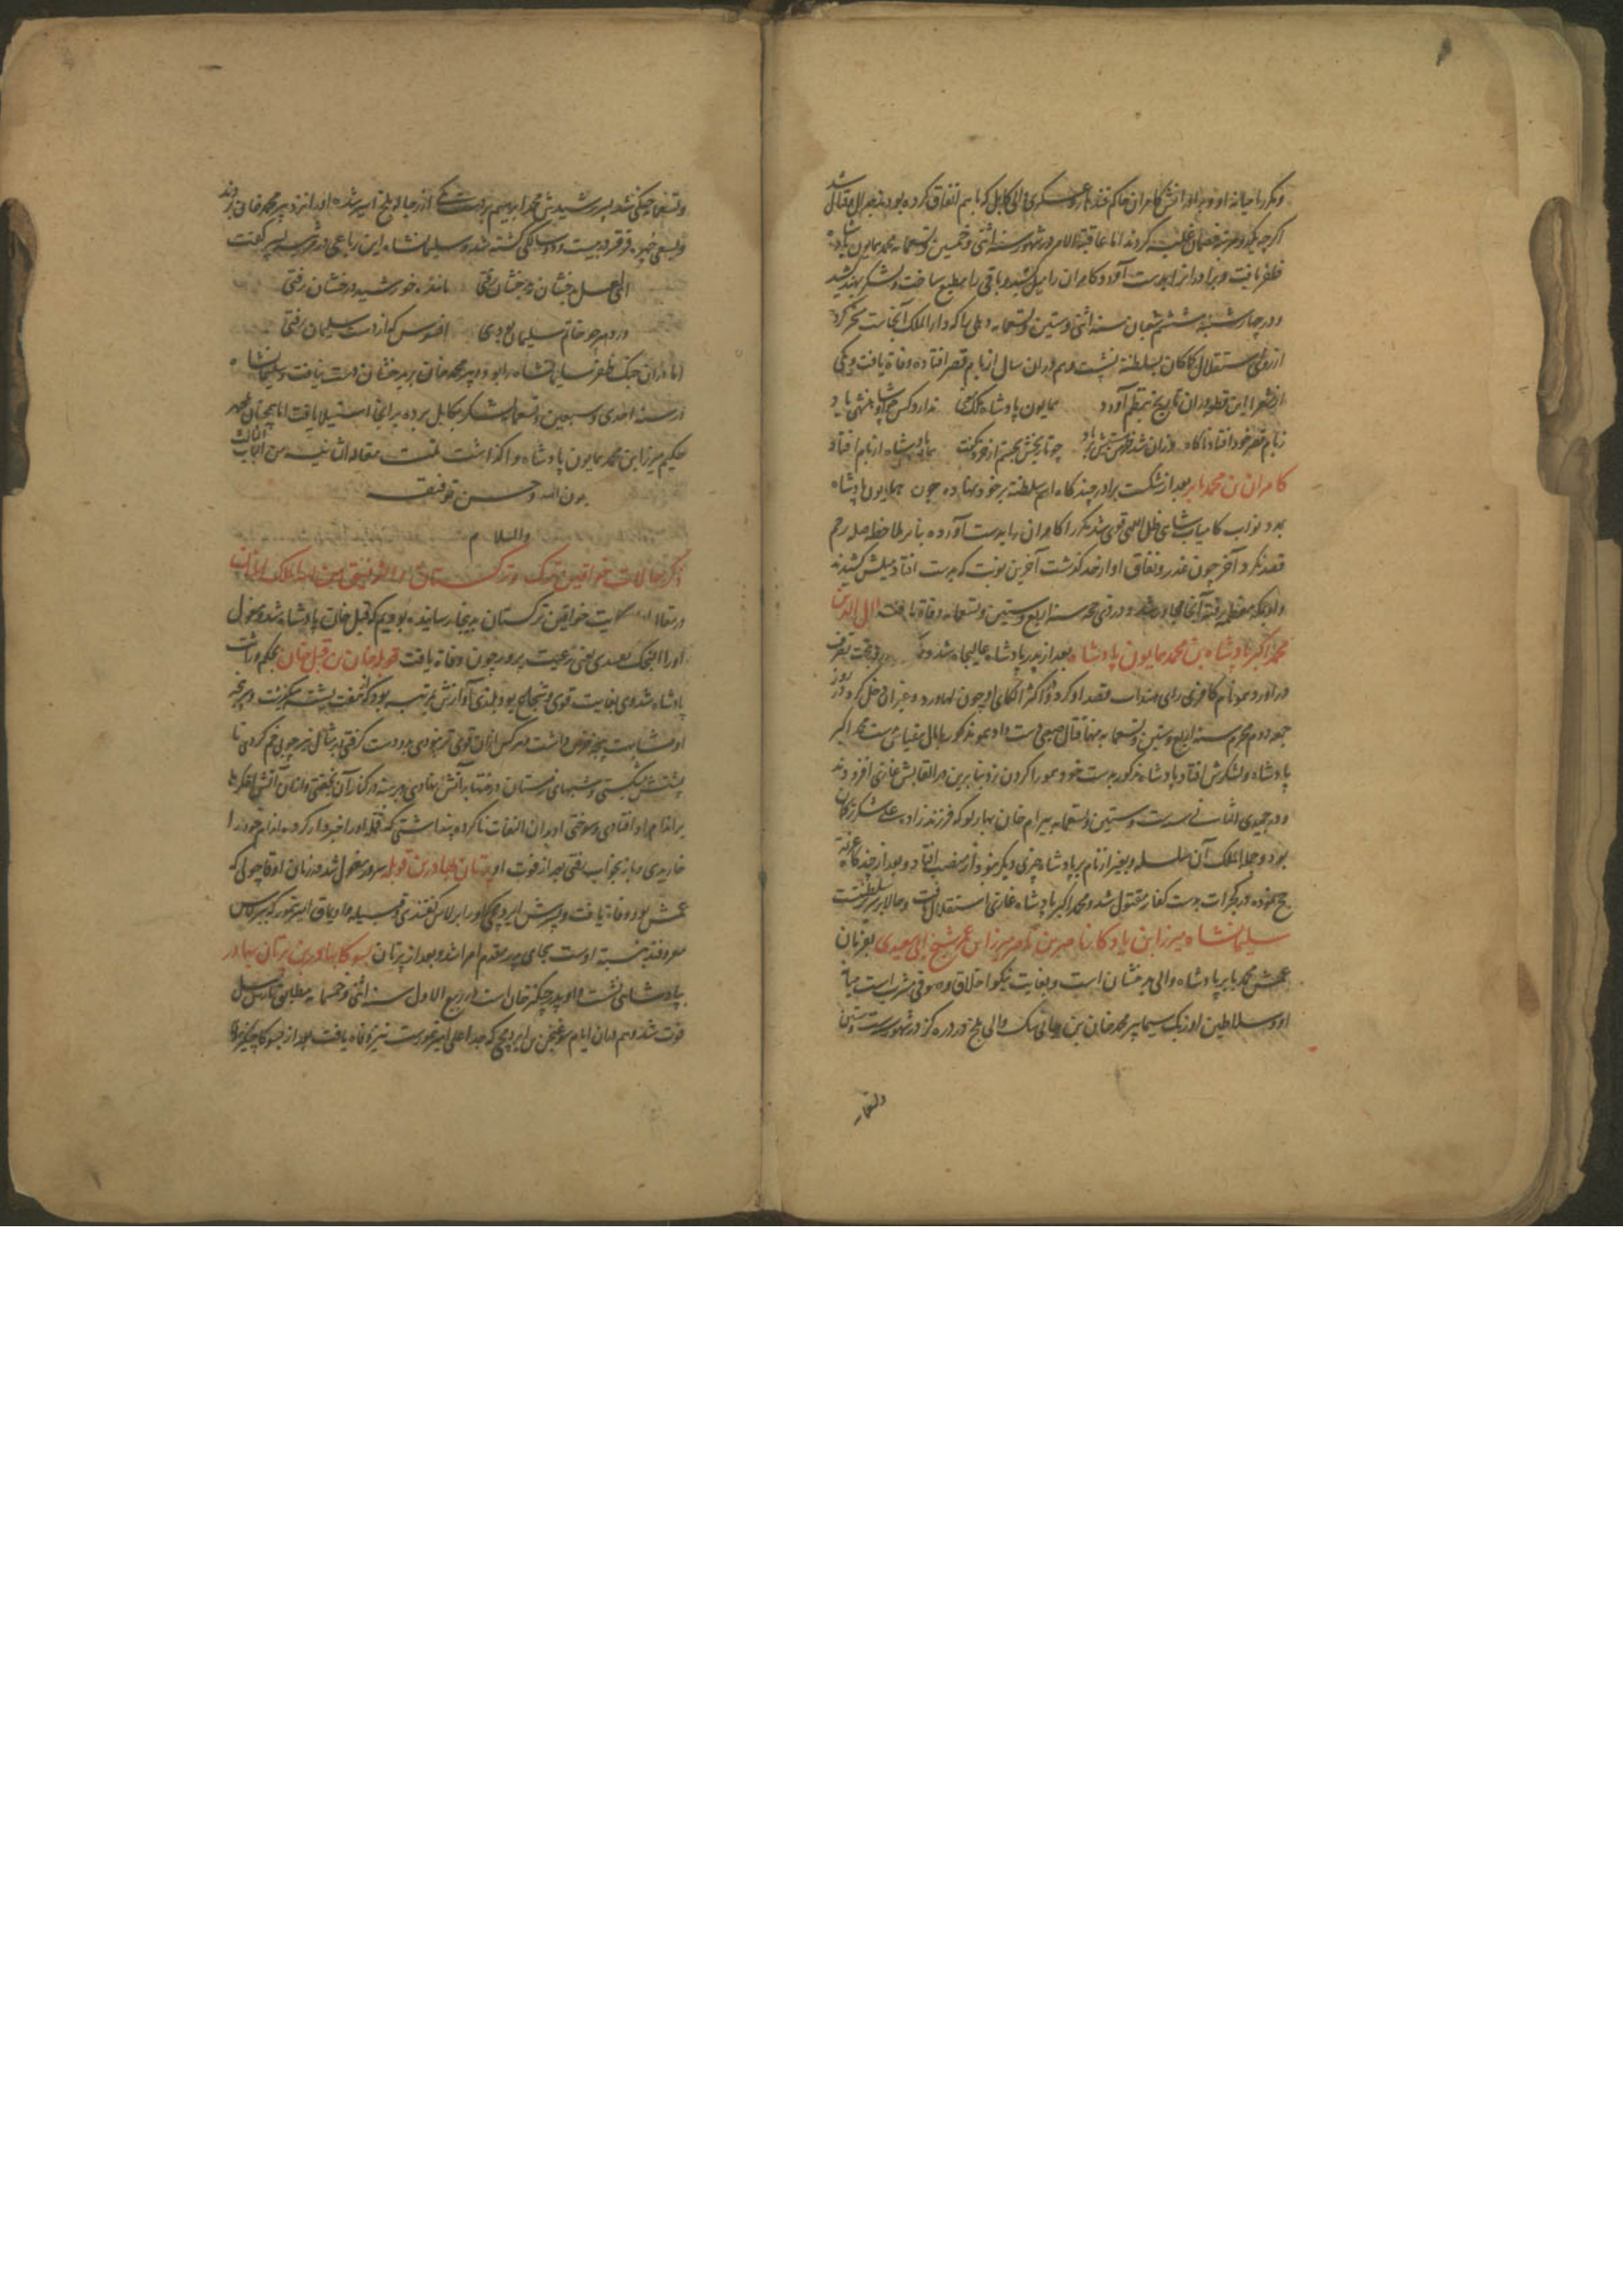 و مکرر میانه او و برادرانش کامران حاکم قندهار و عسکری والی کابل که با هم اتفاق کرده بودند جدال و قتال شد
اگرچه یکدو مرتبه خصمان غلبه کردند اما عاقبة الامر در شهور سنه اثنی و خمسین و تسعمایه محمد همایون پادشاه
ظفر یافت و برادرانرا بدست آورد و کامران را میل کشید و باقی را مطیع ساخت و لشکر بهند کشید
و در چهارشنبه ششم شعبان سنه اثنی و ستین و تسعمایه دهلی را که دار الملک آنجاست مسخر کرد
از روی استقلال کماکان بسلطنة نشست و هم در ان سال از بام قصر افتاده وفاة یافت و یکی
از شعرا این قطعه در ان تاریخ بنظم آورد همایون پادشاه ندارد کس چو او شاهنشهی یاد
ز بام قصر خود افتاد ناکاه وزان شد برباد چو تاریخش بجستم از خرد گفت همایون پادشاه از بام افتاد
کامران بن محمد بابر بعد از شکست برادر چند گاه اسم سلطنة بر خود نهاده چون همایون پادشاه
بمدد نواب کامیاب شاهی ظل اللهی قوی شد مکرر کامران را بدست آورده بنابر ملاحظه صله رحم
قصد نکرد و آخر چون غدر و نفاق او از حد گذشت آخرین نوبت که بدست افتاد میلش کشیدند
و او بمکه معظمه رفته آنجا مجاور شد و در ذی حجه سنه اربع و ستین و تسعمایه وفاة یافت جلال الدین
محمد اکبر پادشاه بن محمد همایون پادشاه بعد از پدر پادشاه عالیجاه شد و تحت تصرف
در آورد هیمو نام کافری رای هندانست قصد او کرد و اکثر الکای او چون لهاور و غیر آن دخل کرد و در روز
جمعه دوم محرم سنه اربع و ستین و تسعمایه قتال صعبی دست داد و هیمو مذکور بدست محمد اکبر
پادشاه و لشکرش افتاد پادشاه مذکور بدست خود هیمو را گردن زد بنابرین در القابش غازی افزودند
و در جمیدی الثانی سنه ستین و تسعمایه بیرام خان بهارلو که فرزندزاده علی شکر ترکمان
بود و جملة الملک آن سلسله و بغیر از نام بر پادشاه چیزی دیگر نبود از منصب افتاد و بعد از چند گاه عزیمة
حج نموده در گجرات بدست کفار مقتول شد و محمد اکبر پادشاه غازی استقلال یافت و حالا بر سریر سلطنتست
سلیمانشاه میرزا بن یادگار ناصر بن میرزا بن عمر شیخ بن ابی سعید بفرمان
عمش محمد بابر پادشاه والی بدخشان است و بغایت نیکو اخلاق و صوفی مشرب است میانه
او و سلاطین اوزبک سیما پیر محمد خان بن جانی بیک والی بلخ در دره گز در شهور ست و ستین
و تسعمایه
و تسعمایه جنگی شد پسر رشیدش محمد ابراهیم بدست رجاله بلخ اسیر شده او را نزد پیر محمد خان بردند
و بسعی در بیست و دو سالگی کشته شد و سلیمانشاه این رباعی در مرثیه پسر گفت
ای لعل بدخشان ز بدخشان رفتی مانند خورشید درخشان رفتی
در دهر چو خاتم سلیمان بودی افسوس که از دست سلیمان رفتی
اما در ان جنگ ظفر سلیمانشاه را بود و پیر محمد خان بر بدخشان دست نیافت و سلیمانشاه
در سنه احدی و سبعین و تسعمایه لشکر بکابل برده بر آنجا استیلا یافت اما همچنان بمحمد
حکیم میرزا بن محمد همایون پادشاه وا گذاشت تمت مقاله الثانیه من الباب الثالث
بعون الله و حسن توفیقه
والسلام
ذکر حالات خواقین ترک و ترکستان
در مقاله حکایت خواقین ترکستان بدینجا رسانیده بودیم که قبل خان پادشاه شد و مغول
او را النجک بعدی یعنی رعیت پرور چون وفاة یافت قوبله خان بن قبل خان بحکم وراثت
پادشاه شد وی بغایت قوی و شجاع بود بلندی آوازش بمرتبه بود که از هفت پشته میگذشت و پنجه
او مشابهت پنجه خرس داشت هر کس از ان قوی تر نبودی بدو دست گرفتی بر مثال تیر چوبی خم کردی تا
پشتش شکستی و شبهای زمستان درختها بر آتش نهادی و برهنه در کنار آن بخفتی و از ان آتش اخگرها
بر اندام او افتادی و سوختی او بدان التفات ناکرده پنداشتی که قمله او را خبر دار کرده اندام خود را
خاریدی و باز بخواب رفتی بعد از فوت او برتان بهادر بن قوبله سرور مغول شد در زمان او قاچولی که
عمش بود وفاة یافت و پسرش ایردمچی که او را برلاس گفتندی و قبیله و اویماق امیر تیمور که ببرلاس
معروفند نسبة باوست بجای پدر مقدم امرا شد و بعد از برتان یسوکا بهادر بن برتان بهادر
بپادشاهی نشست و او پدر چنگز خان است در ربیع الاول سنه اثنی و خمسمایه مطابق
فوت شد و هم در ان ایام سوغجن بن ایردمچی که جد اعلی امیر تیمورست نیز وفاة یافت بعد از یسوکا چنگیز خان